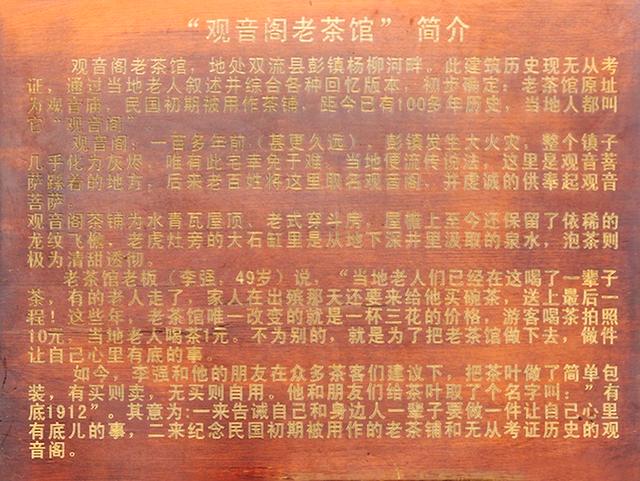 “观音阁老茶馆”简介
观音阁老茶馆，地处双流县彭镇杨柳河畔。此建筑历史现无从考
证，通过当地老人叙述并综合各种回忆版本，初步确定：老茶馆原址
为观音庙，民国初期被用作茶铺，距今已有100多年历史，当地人都叫
它“观音阁”
观音阁：一百多年前（甚更久远），彭镇发生大火灾，整个镇子
几乎化为灰烬，唯有此宅幸免于难，当地便流传说法，这里是观音菩
萨踩着的地方，后来老百姓将这里取名观音阁，并虔诚的供奉起观音
菩萨。
观音阁茶铺为水青瓦屋顶、老式穿斗房，屋檐上至今还保留了依稀的
龙纹飞檐，老虎灶旁的大石缸里是从地下深井里汲取的泉水，泡茶则
极为清甜透彻。
老茶馆老板（李强，49岁）说，“当地老人们已经在这喝了一辈子
茶，有的老人走了，家人在出殡那天还要来给他买碗茶，送上最后一
程！这些年，老茶馆唯一改变的就是一杯三花的价格，游客喝茶拍照
10元，当地老人喝茶1元。不为别的，就是为了把老茶馆做下去，做件
让自己心里有底的事。
如今，李强和他的朋友在众多茶客们建议下，把茶叶做了简单包
装，有买则卖，无买则自用。他和朋友们给茶叶取了个名字叫：”有
底1912”。其意为:一来告诫自己和身边人一辈子要做一件让自己心里
有底儿的事，二来纪念民国初期被用作的老茶铺和无从考证历史的观
音阁。